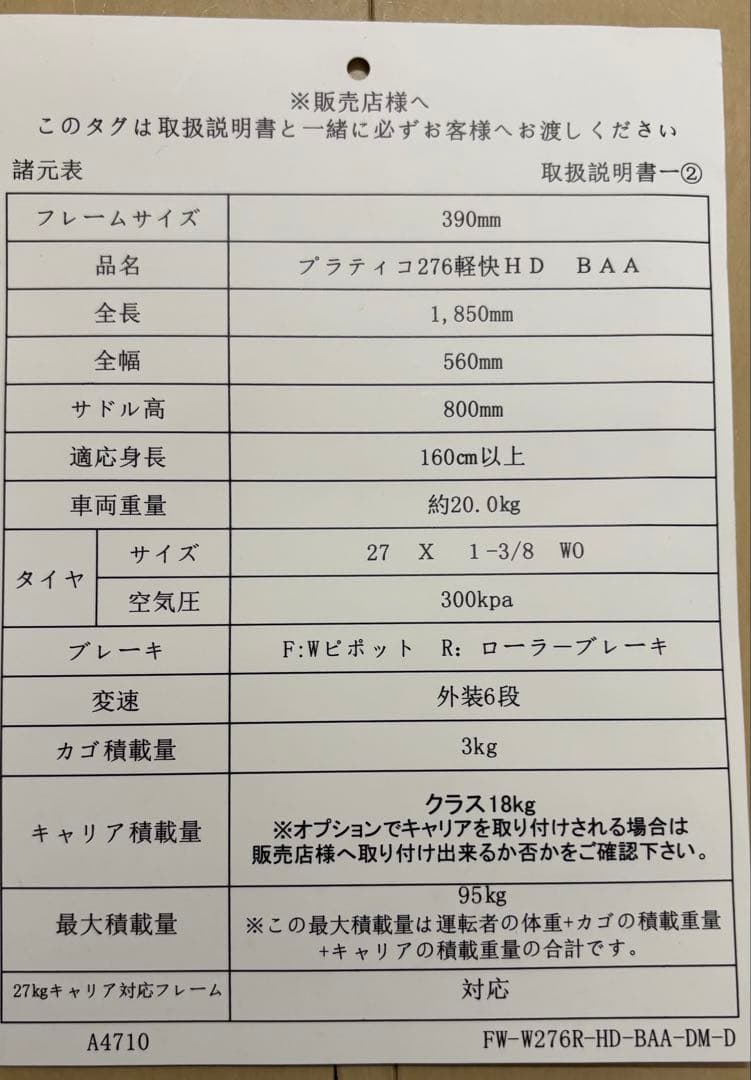 ※販売店様へ
このタグは取扱説明書と一緒に必ずお客様へお渡しください
諸元表 取扱説明書ー②
フレームサイズ 390mm
品名 プラティコ276軽快HD BAA
全長 1,850mm
全幅 560mm
サドル高 800mm
適応身長 160cm以上
車両重量 約20.0kg
タイヤ サイズ 27 X 1-3/8 WO
空気圧 300kpa
ブレーキ F:Wピポット R：ローラーブレーキ
変速 外装6段
カゴ積載量 3kg
キャリア積載量 クラス18kg
※オプションでキャリアを取り付けされる場合は
販売店様へ取り付け出来るか否かをご確認下さい。
最大積載量 95kg
※この最大積載量は運転者の体重+カゴの積載重量
+キャリアの積載重量の合計です。
27kgキャリア対応フレーム 対応
A4710 FW-W276R-HD-BAA-DM-D